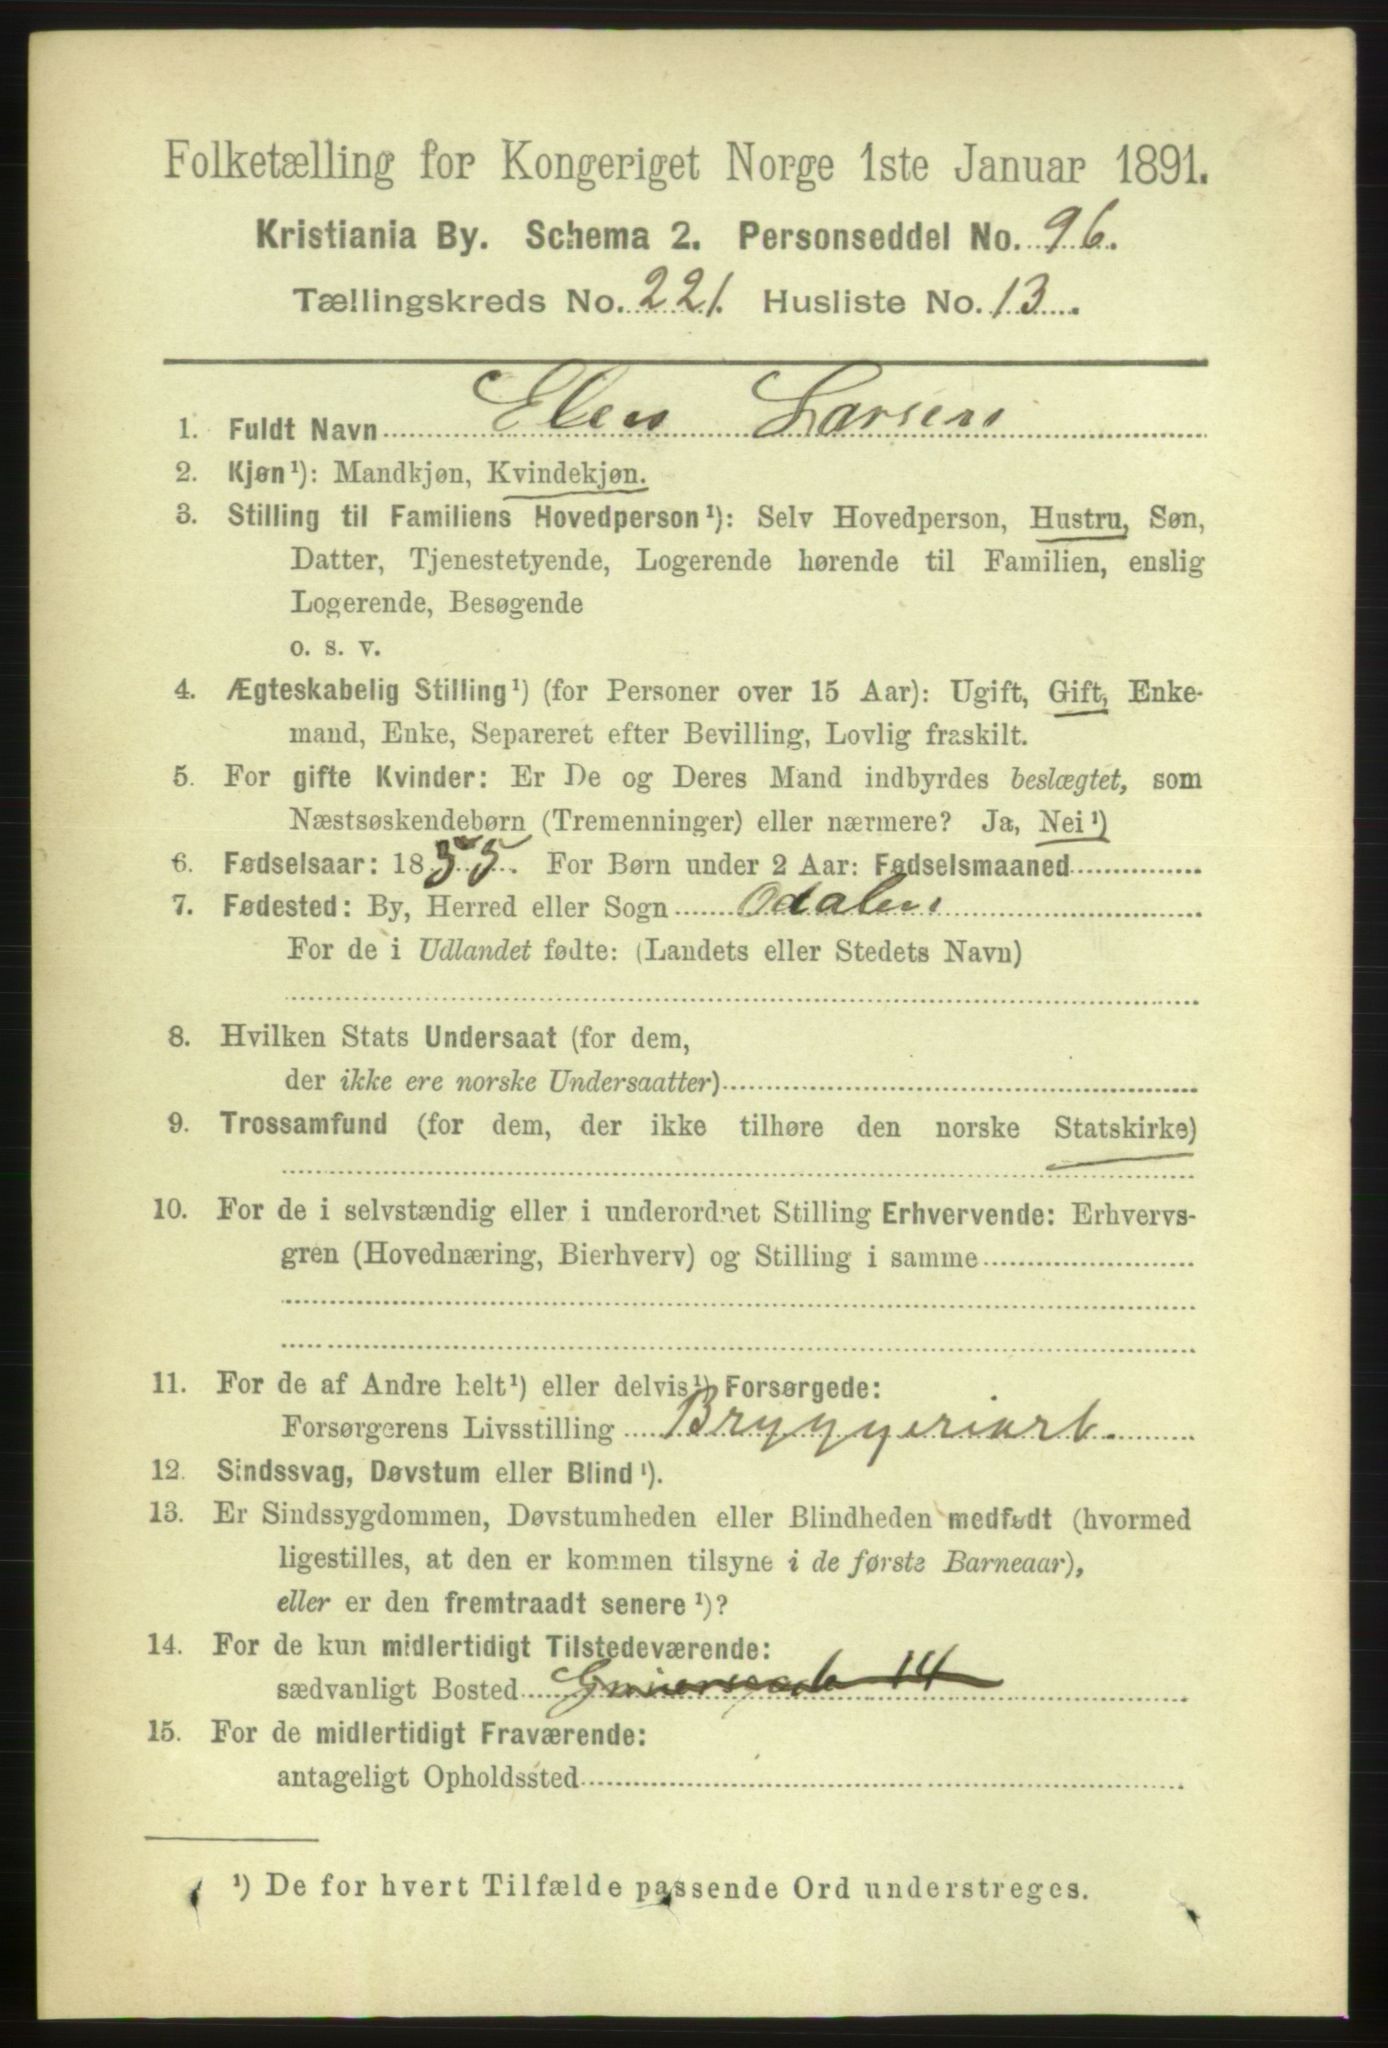 Folketælling for Kongeriget Norge 1ste Januar 1891.
Kristiania By. Schema 2. Personseddel No. 96.
Tællingskreds No. 221. Husliste No. 13.
1. Fuldt Navn Elen Larsen
2. Kjøn¹): Mandkjøn, Kvindekjøn.
3. Stilling til Familiens Hovedperson¹): Selv Hovedperson, Hustru, Søn,
Datter, Tjenestetyende, Logerende hørende til Familien, enslig
Logerende, Besøgende
o. s. v.
4. Ægteskabelig Stilling¹) (for Personer over 15 Aar): Ugift, Gift, Enke-
mand, Enke, Separeret efter Bevilling, Lovlig fraskilt.
5. For gifte Kvinder: Er De og Deres Mand indbyrdes beslægtet, som
Næstsøskendebørn (Tremenninger) eller nærmere? Ja, Nei¹)
6. Fødselsaar: 1855. For Børn under 2 Aar: Fødselsmaaned
7. Fødested: By, Herred eller Sogn Odalen
For de i Udlandet fødte: (Landets eller Stedets Navn)
8. Hvilken Stats Undersaat (for dem,
der ikke ere norske Undersaatter)
9. Trossamfund (for dem, der ikke tilhøre den norske Statskirke)
10. For de i selvstændig eller i underordnet Stilling Erhvervende: Erhvervs-
gren (Hovednæring, Bierhverv) og Stilling i samme
11. For de af Andre helt¹) eller delvis¹) Forsørgede:
Forsørgerens Livsstilling Bryggeriarb.
12. Sindssvag, Døvstum eller Blind¹).
13. Er Sindssygdommen, Døvstumheden eller Blindheden medfødt (hvormed
ligestilles, at den er kommen tilsyne i de første Barneaar),
eller er den fremtraadt senere¹)?
14. For de kun midlertidigt Tilstedeværende:
sædvanligt Bosted 14
15. For de midlertidigt Fraværende:
antageligt Opholdssted
¹) De for hvert Tilfælde passende Ord understreges.